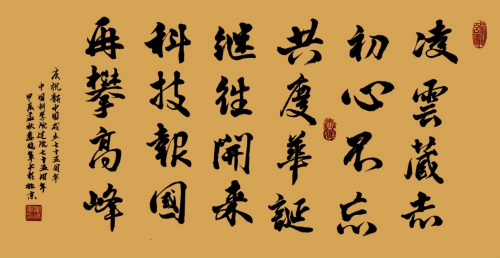 凌雲藏志
初心不忘
共度華誕
继往開来
科技報國
再攀高峰
庆祝新中國成立七十五周年
中国科学院建院七十五周年
甲辰孟秋